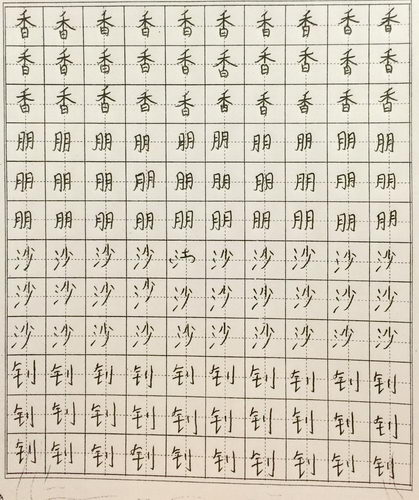 香香香香香香香香香香
香香香香香香香香香香
香香香香香香香香香香
朋朋朋朋朋朋朋朋朋朋
朋朋朋朋朋朋朋朋朋朋
朋朋朋朋朋朋朋朋朋朋
沙沙沙沙沙沙沙沙沙
沙沙沙沙沙沙沙沙沙沙
沙沙沙沙沙沙沙沙沙沙
钊钊钊钊钊钊钊钊钊钊
钊钊钊钊钊钊钊钊钊钊
钊钊钊钊钊钊钊钊钊钊